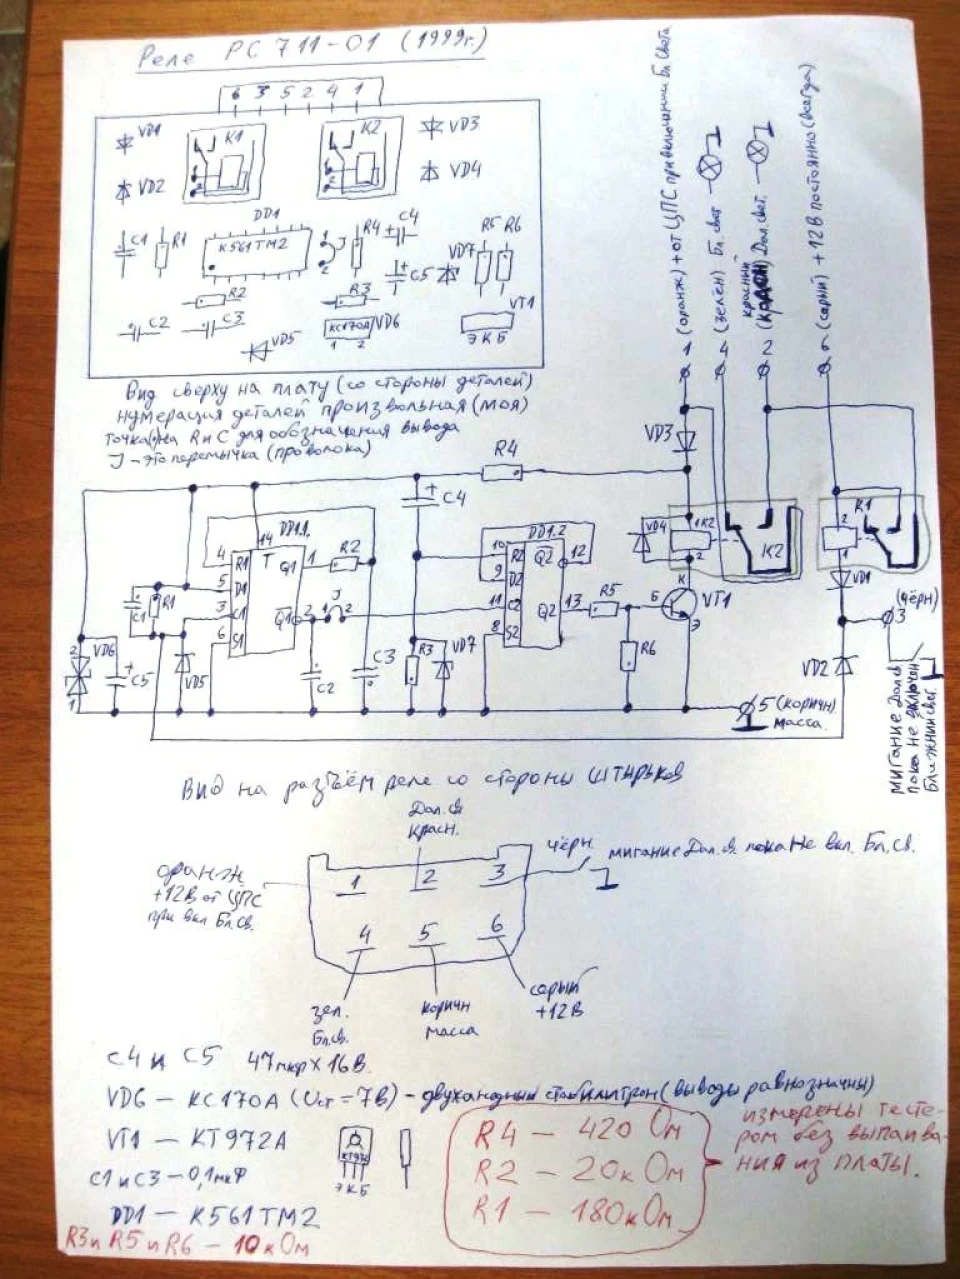 Реле РС 711-01 (1999г.)
6 3 5 2 4 1
VD1 K1 K2 VD3
VD2 VD4
DD1
C1 R1 К561ТМ2 J R4 C4
R5 R6
VD7
C5
R2 R3
C2 C3 КС170А VD6 VT1
VD5 1 2 Э К Б
Вид сверху на плату (со стороны деталей)
нумерация деталей произвольная (моя)
точка(•) на R и C для обозначения вывода
J - это перемычка (проволока)
1 (оранж) + от ЦПС при включении Бл Света
4 (зелён) Бл. свет
красный
2 Дал. свет.
6 (серый) + 12 В постоянно (всегда)
VD3
R4
C4
DD1.1
14
4 R1 T Q1 1 R2
5 D1
3 C1
6 S1 Q1 2 1 J 2
C1 R1
2 VD6 1
C5 VD5 C2 C3 R3 VD7
DD1.2
10 R2 Q2 12
9 D2
11 C2
8 S2 Q2 13 R5
R6
VD4 1 K2 2 K2
К Б Э VT1
2 K1 1
VD1
(чёрн)
3
VD2
5 (коричн)
масса.
мигание Дал.св
пока не включен
Ближний свет.
Вид на разъём реле со стороны штырьков
Дал. св
Красн.
оранж
+12В от ЦПС
при вкл Бл.св.
1 2 3
чёрн
мигание Дал. св. пока Не вкл. Бл. Св.
4 5 6
зел.
Бл.св.
коричн
масса
серый
+12 В
С4 и С5 47мкф х 16 В.
VD6 — КС170А (Uст = 7В) - двуханодный стабилитрон (выводы равнозначны)
VT1 — КТ972А
КТ972
Э К Б
С1 и С3 — 0,1мкФ
DD1 — К561ТМ2
R3 и R5 и R6 — 10 кОм
R4 — 420 Ом
R2 — 20 кОм
R1 — 180 кОм
измерены тесте-
ром без выпаива-
ния из платы.